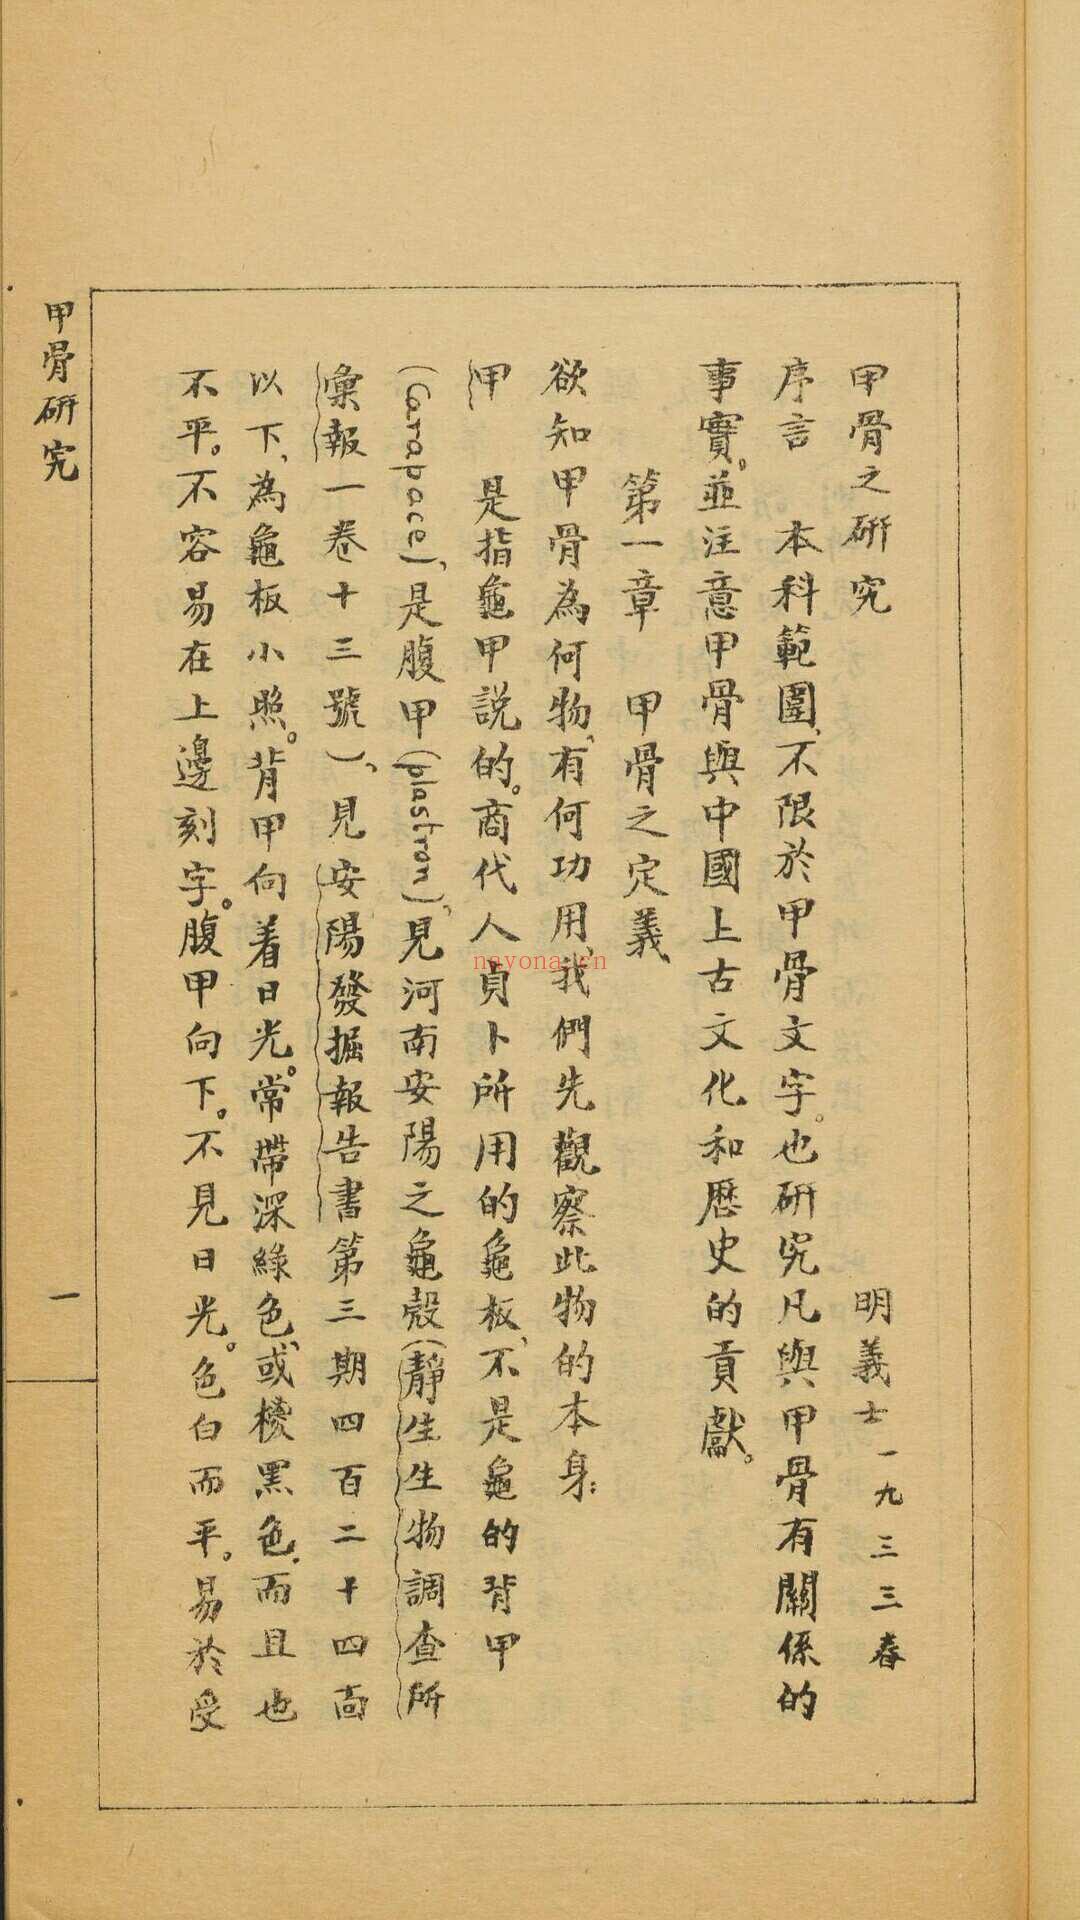 甲骨之研究　明義士　一九三三春
序言　本科範圍、不限於甲骨文字。也研究凡與甲骨有關係的
事實。並注意甲骨與中國上古文化和歷史的貢獻。
第一章　甲骨之定義
欲知甲骨為何物、有何功用、我們先觀察此物的本身：
甲　是指龜甲説的。商代人貞卜所用的龜板、不是龜的背甲
(Carapace)、是腹甲(plastron)、見河南安陽之龜殼(靜生生物調查所
彙報一卷十三號)、見安陽發掘報告書第三期四百二十四面
以下、為龜板小照。背甲向着日光。常帶深綠色、或棕黑色、而且也
不平。不容易在上邊刻字。腹甲向下。不見日光。色白而平。易於受
甲骨研究
一
nayona.cn